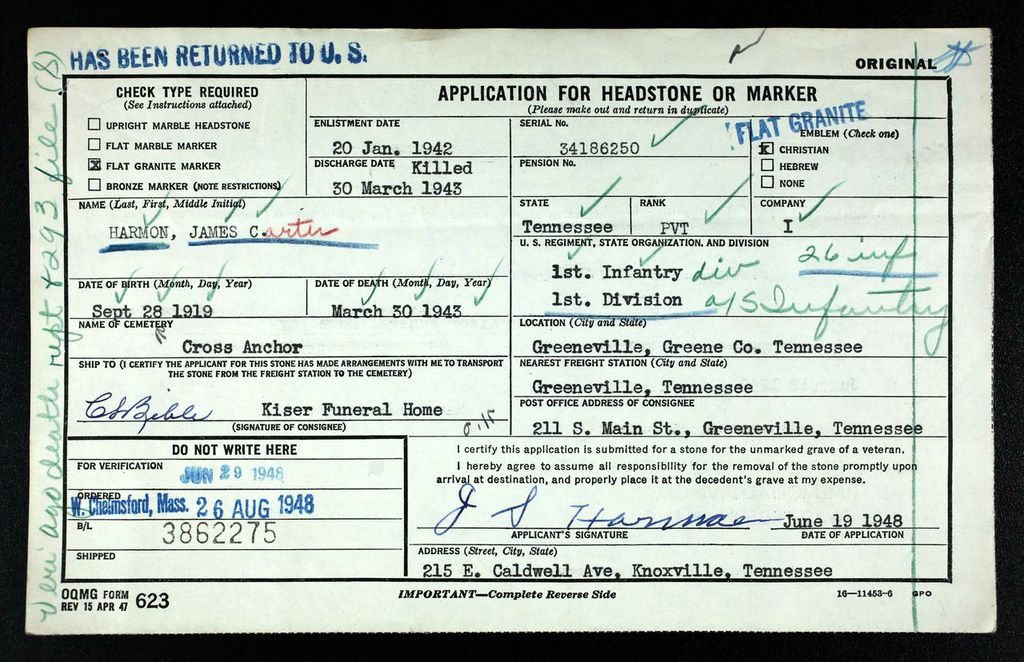 HAS BEEN RETURNED TO U. S.
ORIGINAL
CHECK TYPE REQUIRED
(See Instructions attached)
UPRIGHT MARBLE HEADSTONE
FLAT MARBLE MARKER
☒ FLAT GRANITE MARKER
BRONZE MARKER (NOTE RESTRICTIONS)
APPLICATION FOR HEADSTONE OR MARKER
(Please make out and return in duplicate)
ENLISTMENT DATE
20 Jan. 1942
DISCHARGE DATE Killed
30 March 1943
SERIAL No.
34186250
PENSION No.
FLAT GRANITE
EMBLEM (Check one)
☒ CHRISTIAN
HEBREW
NONE
NAME (Last, First, Middle Initial)
HARMON, JAMES Carter
STATE
Tennessee
RANK
PVT
COMPANY
I
U. S. REGIMENT, STATE ORGANIZATION, AND DIVISION
26 inf
1st. Infantry div
1st. Division a/S Infantry
DATE OF BIRTH (Month, Day, Year)
Sept 28 1919
DATE OF DEATH (Month, Day, Year)
March 30 1943
NAME OF CEMETERY
Cross Anchor
LOCATION (City and State)
Greeneville, Greene Co. Tennessee
SHIP TO (I CERTIFY THE APPLICANT FOR THIS STONE HAS MADE ARRANGEMENTS WITH ME TO TRANSPORT
THE STONE FROM THE FREIGHT STATION TO THE CEMETERY)
C S Bible Kiser Funeral Home
(SIGNATURE OF CONSIGNEE)
NEAREST FREIGHT STATION (City and State)
Greeneville, Tennessee
POST OFFICE ADDRESS OF CONSIGNEE
211 S. Main St., Greeneville, Tennessee
DO NOT WRITE HERE
FOR VERIFICATION
JUN 29 1948
ORDERED
W. Chelmsford, Mass. 26 AUG 1948
B/L
3862275
SHIPPED
I certify this application is submitted for a stone for the unmarked grave of a veteran.
I hereby agree to assume all responsibility for the removal of the stone promptly upon
arrival at destination, and properly place it at the decedent's grave at my expense.
J S Harmon June 19 1948
APPLICANT'S SIGNATURE
DATE OF APPLICATION
ADDRESS (Street, City, State)
215 E. Caldwell Ave, Knoxville, Tennessee
OQMG FORM
REV 15 APR 47 623
IMPORTANT—Complete Reverse Side
16—11453-6 GPO
Veri ago death rept & 293 file (S)